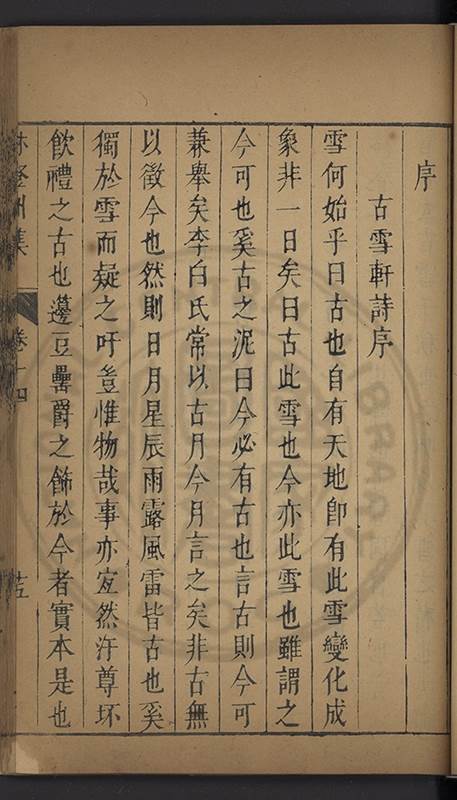 序
古雪軒詩序
雪何始乎曰古也自有天地即有此雪變化成
象非一日矣曰古此雪也今亦此雪也雖謂之
今可也奚古之泥曰今必有古也言古則今可
兼舉矣李白氏常以古月今月言之矣非古無
以徵今也然則日月星辰雨露風雷皆古也奚
獨於雪而疑之吁豈惟物哉事亦宜然汙尊抔
飲禮之古也籩豆罍爵之飾於今者實本是也
集 卷十四